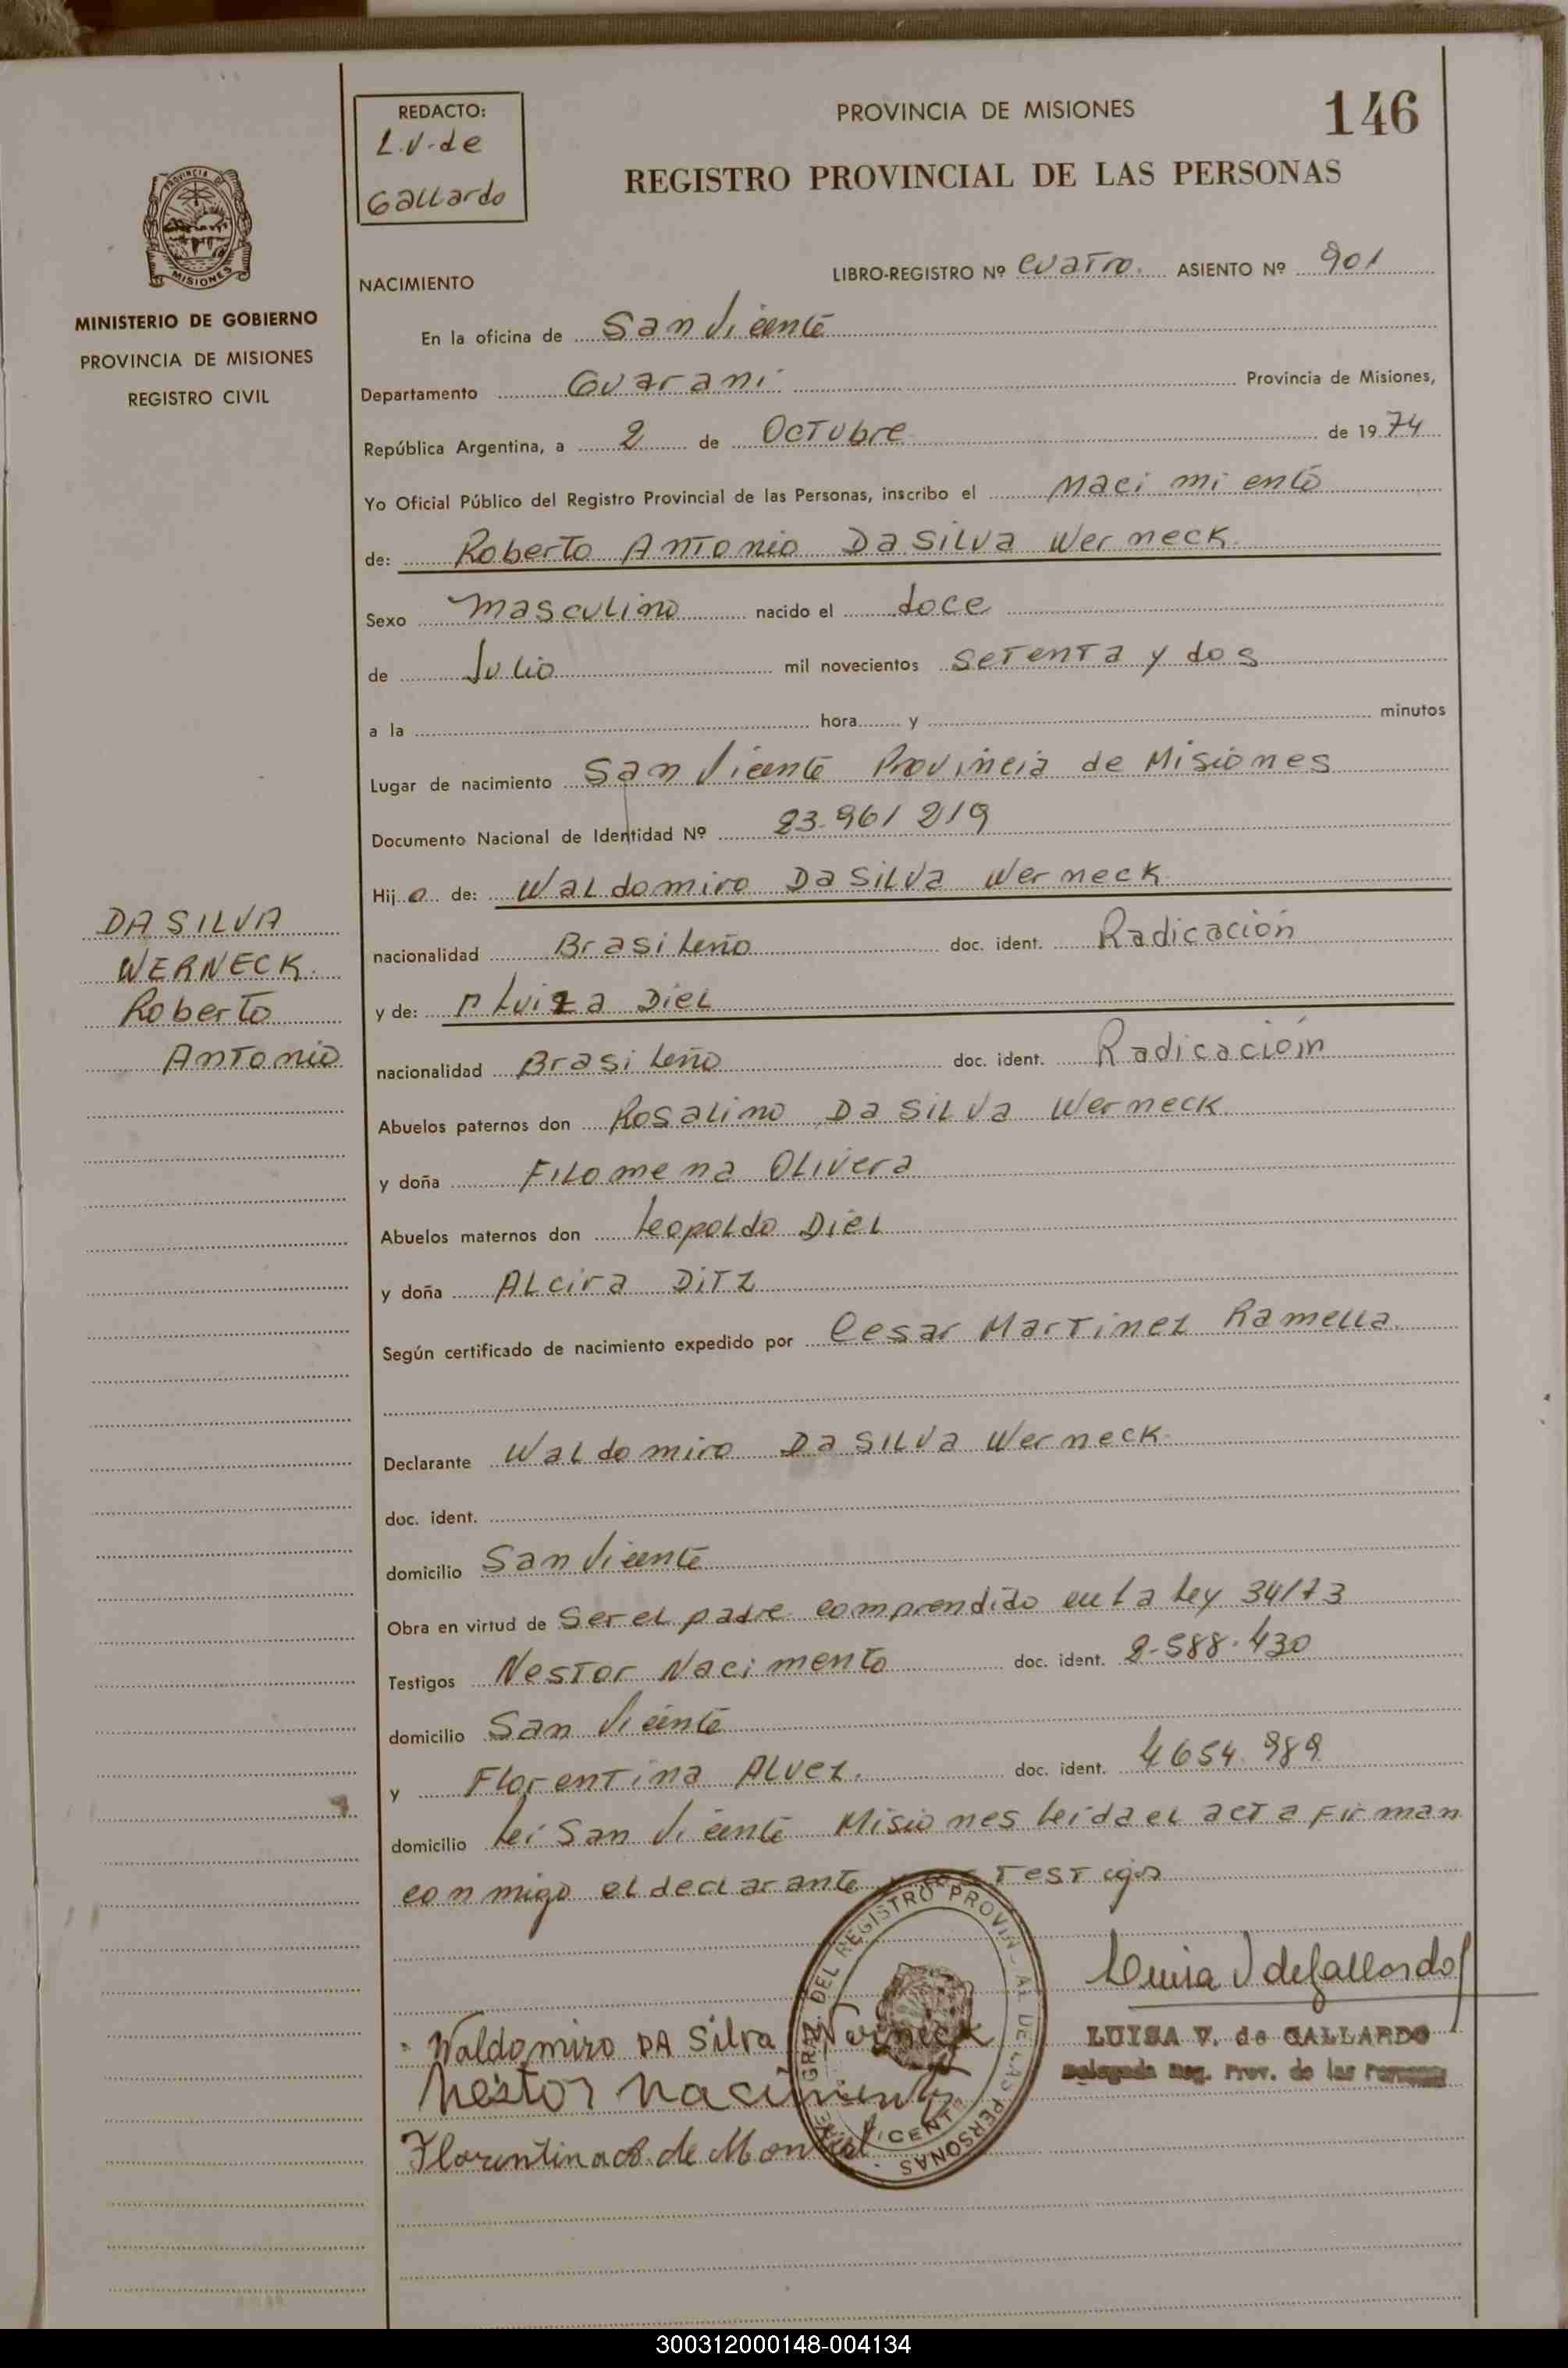 REDACTO:
L.V. de
Gallardo
PROVINCIA DE MISIONES
146
REGISTRO PROVINCIAL DE LAS PERSONAS
PROVINCIA DE
MISIONES
MINISTERIO DE GOBIERNO
PROVINCIA DE MISIONES
REGISTRO CIVIL
NACIMIENTO
LIBRO-REGISTRO Nº cuatro. ASIENTO Nº 901
En la oficina de San Vicente
Departamento Guarani Provincia de Misiones,
República Argentina, a 2 de Octubre de 1974
Yo Oficial Público del Registro Provincial de las Personas, inscribo el Nacimiento
de: Roberto Antonio Da Silva Werneck
Sexo masculino nacido el doce
de Julio mil novecientos setenta y dos
a la hora y minutos
Lugar de nacimiento San Vicente Provincia de Misiones
Documento Nacional de Identidad Nº 23.961219
Hijo de: Waldomiro Da Silva Werneck
nacionalidad Brasileño doc. ident. Radicación
y de: Luiza Diel
nacionalidad Brasileño doc. ident. Radicación
Abuelos paternos don Rosalino Da Silva Werneck
y doña Filomena Olivera
Abuelos maternos don Leopoldo Diel
y doña Alcira Ditz
Según certificado de nacimiento expedido por Cesar Martinez Ramella
Declarante Waldomiro Da Silva Werneck
doc. ident.
domicilio San Vicente
Obra en virtud de Ser el padre comprendido en la Ley 34/73
Testigos Nestor Nacimento doc. ident. 2.588.430
domicilio San Vicente
y Florentina Alvez. doc. ident. 4654.989
domicilio Lei San Vicente Misiones leida el acta firman
conmigo el declarante testigos
DA SILVA
WERNECK.
Roberto
Antonio
Luisa V de Gallardo
LUISA V. de GALLARDO
Delegada Reg. Prov. de las Personas
Waldomiro DA Silva Werneck
Nestor Nacimento
Florentina A. de Montiel
DEL REGISTRO PROVINCIAL DE LAS PERSONAS
VICENTE
300312000148-004134